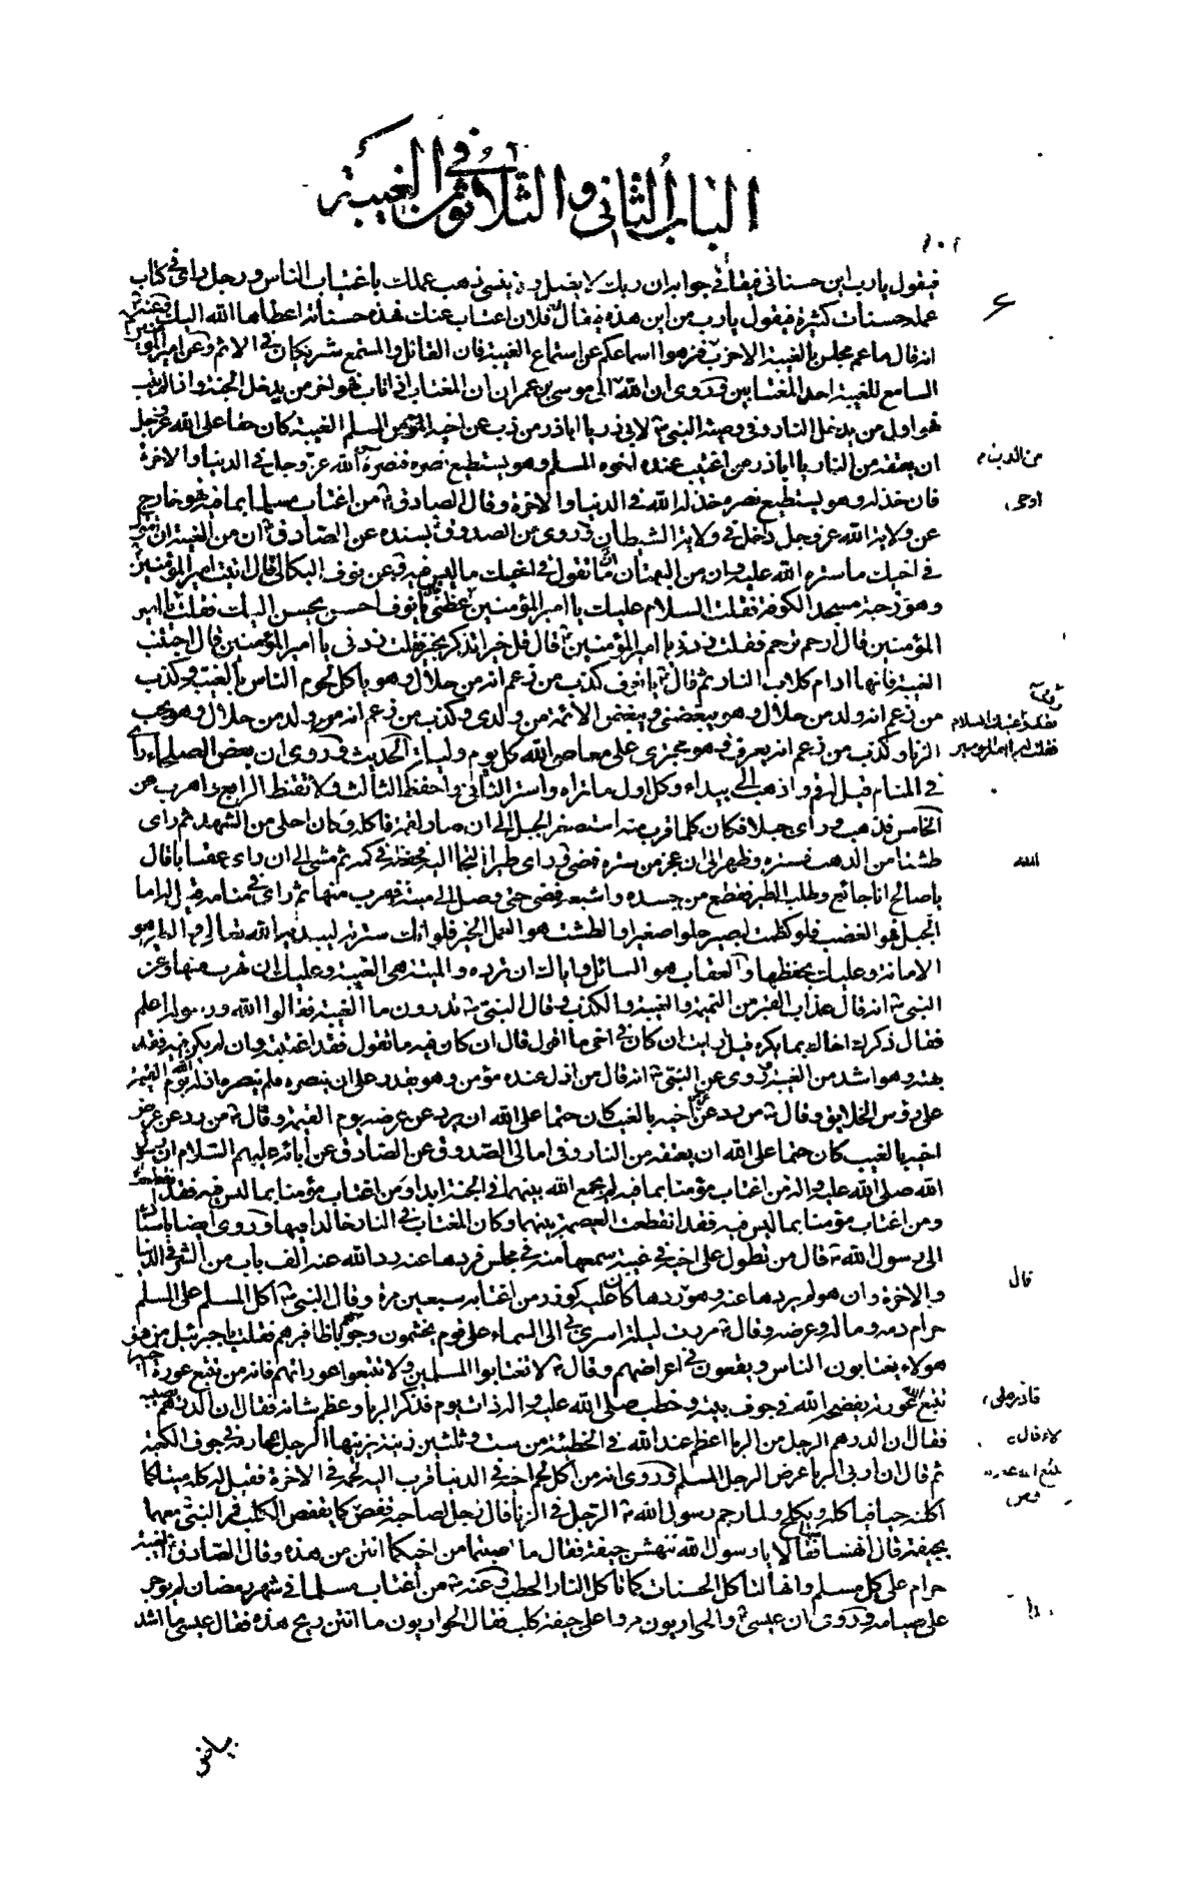 الباب الثاني والثلاثون في الغيبة
فيقول يارب اين حسناتي فيقال في جوابه ان ربك لا يضل ولا ينسى ذهب عملك باغتياب الناس ورجل راى في كتاب
عمله حسنات كثيرة فيقول يارب من اين هذه فيقال فلان اغتاب عنك فهذه حسناته اعطاها الله اليك وعنه
انه قال ما عمر مجلس بالغيبة الا خرب فنزهوا اسماعكم عن استماع الغيبة فان القائل والمستمع شريكان في الاثم وعن امير المؤمنين
السامع للغيبة احد المغتابين وروى ان الله الى موسى بن عمران ان المغتاب اذا تاب فهو اخر من يدخل الجنة واذا لم يتب
فهو اول من يدخل النار وفي وصية النبي لابي ذر يا اباذر من ذب عن اخيه المسلم الغيبة كان حقا على الله عز وجل
ان يعتقه من النار يا اباذر من اغتيب عنده اخوه المسلم وهو يستطيع نصره فنصره الله عز وجل في الدنيا والاخرة
من الذب
فان خذله وهو يستطيع نصره خذله الله في الدنيا والاخرة وقال الصادق من اغتاب مسلما بما فيه فهو خارج
اوحى
عن ولاية الله عز وجل داخل في ولاية الشيطان وروى عن الصدوق بسنده عن الصادق ان من الغيبة ان تقول
في اخيك ما ستره الله عليه وان من البهتان ان تقول في اخيك ما ليس فيه وعن نوف البكالي قال اتيت امير المؤمنين
وهو في رحبة مسجد الكوفة فقلت السلام عليك يا امير المؤمنين عظني يا نوف احسن يحسن اليك فقلت يا امير
المؤمنين قال ارحم ترحم فقلت زدني يا امير المؤمنين قال قل خيرا تذكر بخير فقلت زدني يا امير المؤمنين قال اجتنب
الغيبة فانها ادام كلاب النار ثم قال يا نوف كذب من زعم انه من حلال وهو ياكل لحوم الناس بالغيبة وكذب
من زعم انه ولد من حلال وهو يبغضني ويبغض الائمة من ولدي وكذب من زعم انه ولد من حلال وهو يحب
الزنا وكذب من زعم انه يعرف وهو مجتري على معاصي الله كل يوم وليلة الحديث وروى ان بعض الصلحاء راى
في المنام قيل له قم واذهب الى بيداء وكل اول ما تراه واستر الثاني واحفظ الثالث ولا تقنط الرابع واهرب من
الخامس فذهب وراى جبلا فكان كلما قرب منه استصغر الجبل الى ان صار لقمة فاكله وكان احلى من الشهد ثم راى
طشتا من الذهب فستره وظهر الى ان عجز من ستره فمضى وراى طيرا التجأ اليه فحفظه في كمه ثم مشى الى ان راى عقابا قال
يا صالح انا جائع وطلب الطير فقطع من جسده واشبعه فمضى حتى وصل الى ميتة فهرب منها ثم راى في منامه قيل له اما
الجبل فهو الغضب فلو كظمت يصير حلوا صغيرا والطشت هو العمل الخير فلو انك سترته ليبديه الله تعالى والطير هو
الامانة وعليك بحفظها والعقاب هو السائل واياك ان ترده والميتة هي الغيبة وعليك ان تهرب منها وعن
النبي انه قال عذاب القبر من النميمة والغيبة والكذب وقال النبي تدرون ما الغيبة فقالوا الله ورسوله اعلم
فقال ذكرك اخاك بما يكره قيل ارايت ان كان في اخي ما اقول قال ان كان فيه ما تقول فقد اغتبته وان لم يكن فيه فقد
بهته وهو اشد من الغيبة وروى عن النبي انه قال من اذل عنده مؤمن وهو يقدر على ان ينصره فلم ينصره اذله الله يوم القيمة
على رؤس الخلايق وقال من رد عن عرض اخيه بالغيب كان حقا على الله ان يرد عن عرضه يوم القيمة وقال من رد عن عرض
اخيه بالغيب كان حقا على الله ان يعتقه من النار وفي امالي الصدوق عن الصادق عن ابائه عليهم السلام ان رسول
الله صلى الله عليه واله من اغتاب مؤمنا بما فيه لم يجمع الله بينهما في الجنة ابدا ومن اغتاب مؤمنا بما ليس فيه فقد
ومن اغتاب مؤمنا بما ليس فيه فقد انقطعت العصمة بينهما وكان المغتاب في النار خالدا فيها وروى ايضا باسناده
الى رسول الله قال من تطول على اخيه في غيبة سمعها منه في مجلس فردها عنه رد الله عنه الف باب من الشر في الدنيا
والاخرة وان هو لم يردها عنه وهو ردها كان عليه كوزر من اغتابه سبعين مرة وقال النبي كل المسلم على المسلم
قال
حرام دمه وماله وعرضه وقال مررت ليلة اسرى بي الى السماء على قوم يخمشون وجوههم باظافيرهم فقلت يا جبرئيل من هؤلاء
هولاء يغتابون الناس ويقعون في اعراضهم وقال لا تغتابوا المسلمين ولا تتبعوا عوراتهم فانه من تتبع عورة اخيه
تتبع الله عورته يفضحه الله في جوف بيته وخطب صلى الله عليه واله ذات يوم فذكر الربا وعظم شانه فقال ان الدرهم
فقال ان الدرهم الرجل من الربا اعظم عند الله في الخطيئة من ست وثلثين زنية يزنيها الرجل بمحارمه في جوف الكعبة
ثم قال ان اربى الربا عرض الرجل المسلم وروى انه من اكل لحم اخيه في الدنيا قرب اليه لحمه في الاخرة فقيل له كله ميتا كما
اكلته حيا فياكله ويكلح ولما رجم رسول الله الرجل في الزنا قال رجل لصاحبه قعص كما يقعص الكلب فمر النبي معهما
بجيفة قال انهشا فقالا يا رسول الله ننهش جيفة فقال ما اصبتما من اخيكما انتن من هذه وقال الصادق الغيبة
حرام على كل مسلم وانها لتاكل الحسنات كما تاكل النار الحطب وعنه من اغتاب مسلما في شهر رمضان لم يوجر
على صيامه وروى ان عيسى والحواريون مروا على جيفة كلب فقال الحواريون ما انتن ريح هذه فقال عيسى ما اشد
بياض